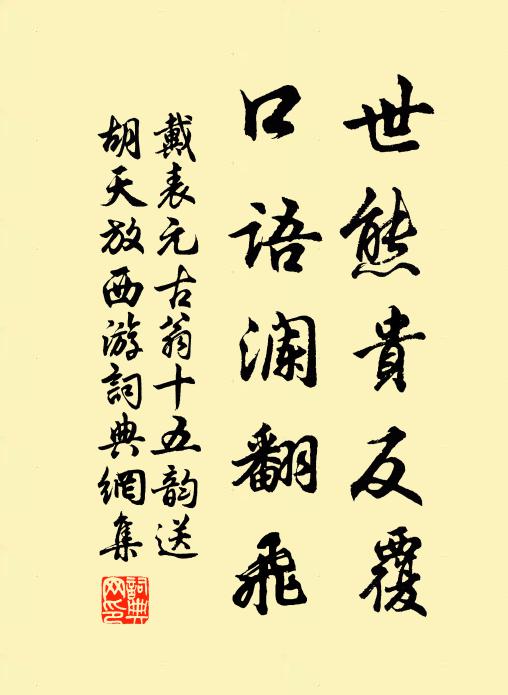 世態貴反覆
口語瀾翻飛
戴表元古翁十五韵送
胡天放西游詞典網集
詞典網印